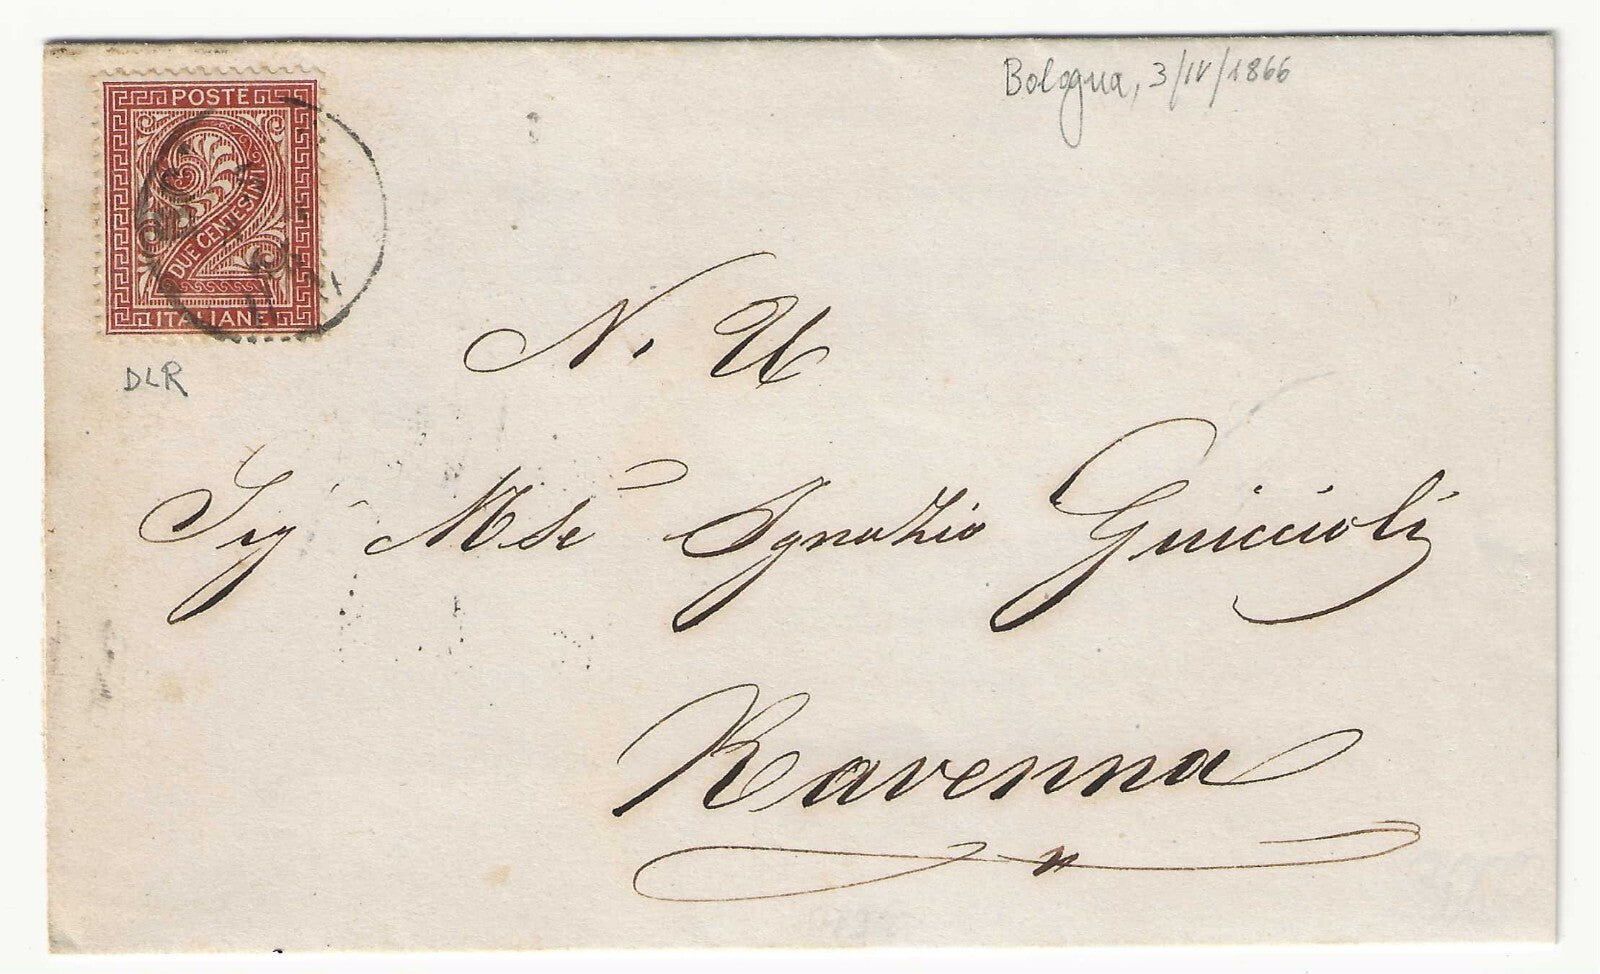 Bologna, 3/IV/1866
POSTE
DUE CENTESIMI
ITALIANE
DLR
N. U
Sigr Mse Ignazio Guiccioli
Ravenna